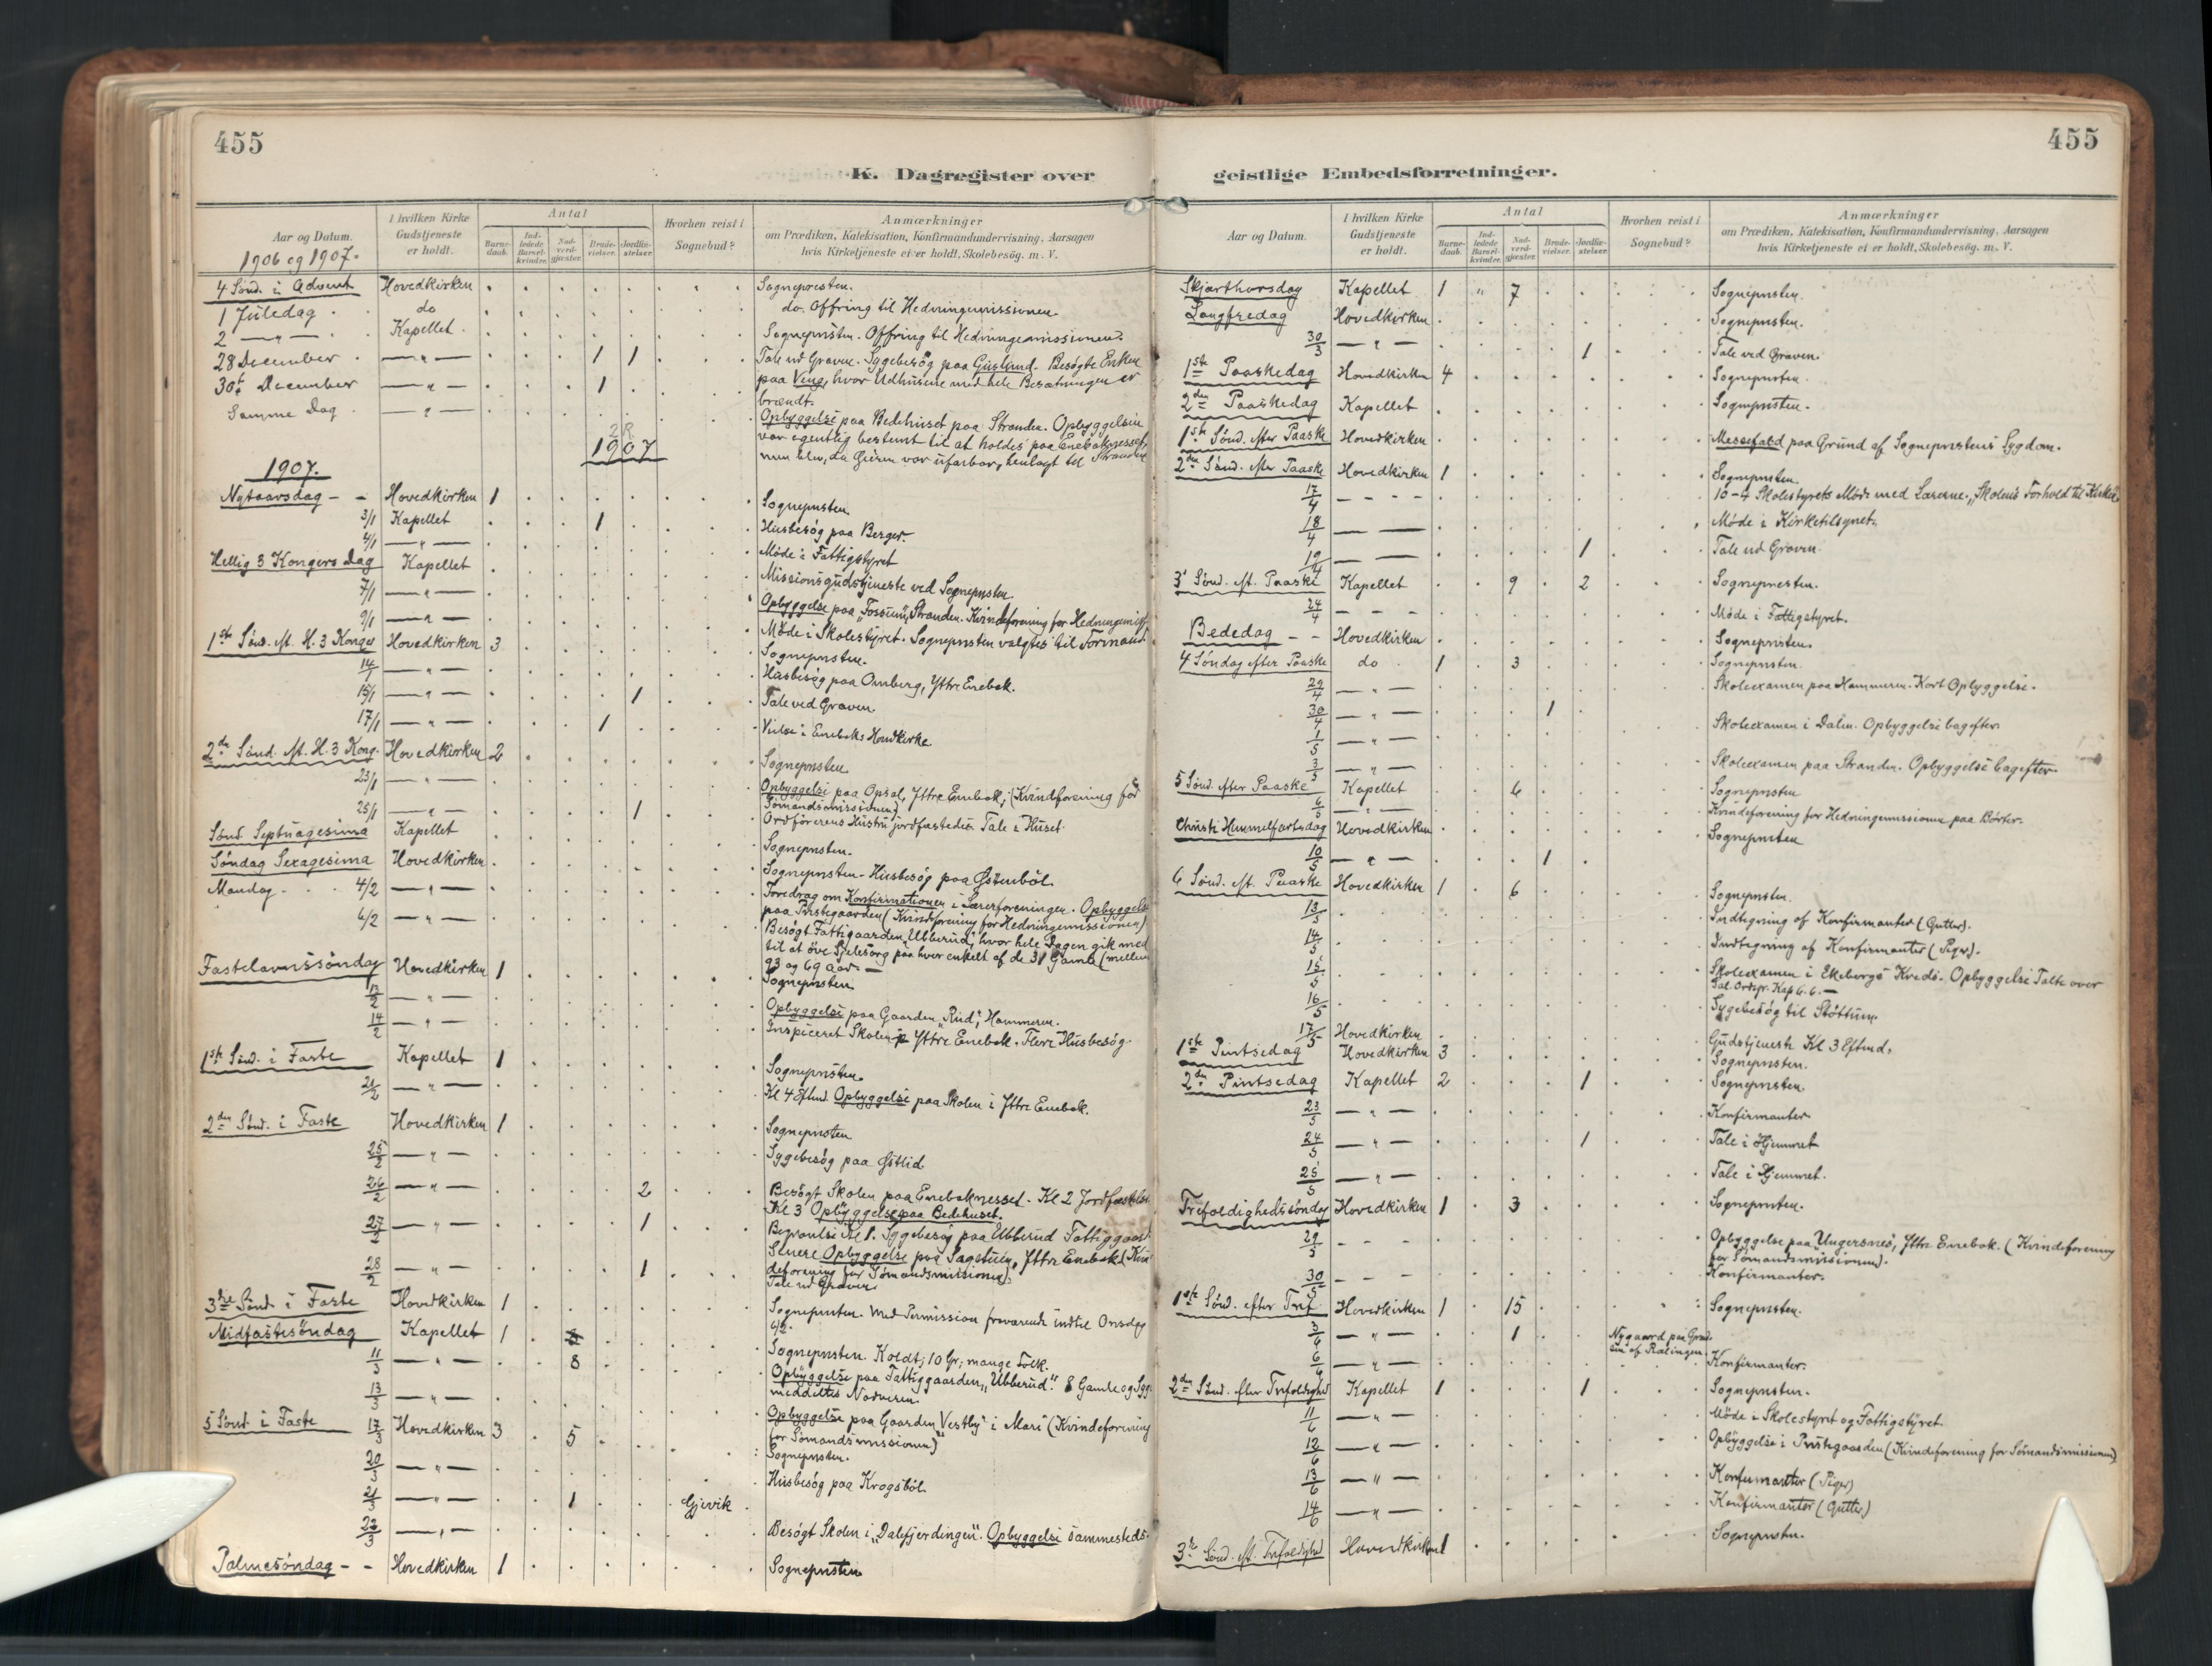 455
K. Dagregister over
Aar og Datum.
1906 og 1907.
I hvilken Kirke Gudstjeneste er holdt.
Antal
Barne-daab.
Ind-ledede Barsel-kvinder.
Nad-verd-gjæster.
Brude-vielser.
Jordfæ-stelser.
Hvorhen reist i Sognebud?
Anmærkninger
om Prædiken, Katekisation, Konfirmandundervisning, Aarsagen
hvis Kirketjeneste ei er holdt, Skolebesög. m. V.
4 Sönd. i Advent Hovedkirken Sognepresten.
1 Juledag do do. Offring til Hedningemissionen.
2 — " — Kapellet Sognepresten. Offring til Hedningemissionen.
28 December — " — 1 1 Tale ved Graven. Sygebesög paa Gislund. Besøgte Enken
30te December — " — 1 paa Veng, hvor Udhusene med hele Besætningen er
brændt.
Samme Dag — " — Opbyggelse paa Bedehuset paa Stranden. Opbyggelsen
var egentlig bestemt til at holdes paa Enebaknesset,
men blev, da Gieren var ufarbar, henlagt til Stranden
1907
1907.
Nytaarsdag – – Hovedkirken 1 Sognepresten.
3/1 Kapellet 1 Husbesög paa Berger.
4/1 — " — Möde i Fattigstyret
Hellig 3 Kongers Dag Kapellet Missionsgudstjeneste ved Sognepresten.
7/1 — " — Opbyggelse paa "Tossum", Stranden. Kvindeforening for Hedningemiss.
9/1 — " — Möde i Skolestyret. Sognepresten valgtes til Formand.
1ste Sönd. eft. H. 3 Konger Hovedkirken 3 Sognepresten.
14/1 — " — Husbesög paa Omberg, Yttre Enebak.
15/1 — " — 1 Tale ved Graven.
17/1 — " — 1 Vielse i Enebaks Hovedkirke
2den Sönd. eft. H. 3 Kong. Hovedkirken 2 Sognepresten.
23/1 — " — Opbyggelse paa Opsal, Yttre Enebak, (Kvindeforening for
Sömandsmissionen)
25/1 — " — 1 Ordförerens Hustru jordfæstedes. Tale i Huset.
Sönd. Septuagesima Kapellet Sognepresten.
Söndag Sexagesima Hovedkirken Sognepresten. Husbesög paa Østenböl.
Mandag 4/2 — " — Foredrag om Konfirmationen i Lærerforeningen. Opbyggelse
paa Prestegaarden (Kvindeforening for Hedningemissionen)
6/2 — " — Besögt Fattiggaarden "Ubberud", hvor hele Dagen gik med
til at öve Sjelesorg paa hver enkelt af de 31 Gamle (mellem
93 og 69 Aar. —
Fastelavnssöndag Hovedkirken 1 Sognepresten
12/2 — " — Opbyggelse paa Gaarden "Rud", Hammeren.
14/2 — " — Inspiceret Skolen i Yttre Enebak. Flere Husbesög.
1ste Sönd. i Faste Kapellet 1 Sognepresten.
21/2 — " — Kl 4 Eftmd. Opbyggelse paa Skolen i Yttre Enebak.
2den Sönd. i Faste Hovedkirken 1 Sognepresten
25/2 — " — Sygebesög paa Østlid
26/2 — " — 2 Besögt Skolen paa Enebaknesset. Kl 2 Jordfæstelse.
Kl 3 Opbyggelse paa Bedehuset.
27/2 — " — 1 Begravelse Kl 1. Sygebesög paa Ubberud Fattiggaard.
Senere Opbyggelse paa Sagstuen, Yttre Enebak (Kvin
deforening for Sömandsmissionen)
28/2 — " — 1 Tale ved Graven.
3die Sönd. i Faste Hovedkirken 1 Sognepresten. Med Permission fraværende indtil Onsdag
6/2.
Midfastesöndag Kapellet 1 Sognepresten. Koldt; 10 Gr; mange Folk.
11/3 — " — 8 Opbyggelse paa Fattiggaarden "Ubberud". 8 Gamle og Syge
meddeltes Nadveren.
13/3 — " — Opbyggelse paa Gaarden "Vestby" i Mari (Kvindeforening
for Sömandsmissionen)
5 Sönd. i Faste 17/3 Hovedkirken 3 5 Sognepresten.
20/3 — " — Husbesög paa Krogsböl.
21/3 — " — 1 Gjevik
22/3 — " — Besögt Skolen i "Dalefjerdingen". Opbyggelse sammesteds.
Palmesöndag – – Hovedkirken 1 Sognepresten
455
geistlige Embedsforretninger.
Aar og Datum.
I hvilken Kirke Gudstjeneste er holdt.
Antal
Barne-daab.
Ind-ledede Barsel-kvinder.
Nad-verd-gjæster.
Brude-vielser.
Jordfæ-stelser.
Hvorhen reist i Sognebud?
Anmærkninger
om Prædiken, Katekisation, Konfirmandundervisning, Aarsagen
hvis Kirketjeneste ei er holdt, Skolebesög. m. V.
Skjærthorsdag Kapellet 1 " 7 Sognepresten.
Langfredag Hovedkirken Sognepresten.
30/3 — " — 1 Tale ved Graven.
1ste Paaskedag Hovedkirken 4 Sognepresten.
2den Paaskedag Kapellet Sognepresten.
1ste Sönd. efter Paaske Hovedkirken Messefald paa Grund af Sogneprestens Sygdom.
2den Sönd. efter Paaske Hovedkirken 1 Sognepresten.
17/4 – – – – 10–4 Skolestyrets Möde med Lærerne. "Skolens Forhold til Kirken"
18/4 — — Möde i Kirketilsynet.
19/4 — — 1 Tale ved Graven.
3' Sönd. eft. Paaske Kapellet 9 2 Sognepresten.
24/4 – – – Möde i Fattigstyret.
Bededag – – Hovedkirken Sognepresten.
4 Söndag efter Paaske do 1 3 Sognepresten.
29/4 — " — Skoleexamen paa Hammeren. Kort Opbyggelse.
30/4 — " — 1 Skoleexamen i Dalen. Opbyggelse bagefter.
1/5 — " —
3/5 — " — Skoleexamen paa Stranden. Opbyggelse bagefter.
5 Sönd. efter Paaske Kapellet 6 Sognepresten
6/5 — " — Kvindeforening for Hedningemissionen paa Börter.
Christi Himmelfartsdag Hovedkirken Sognepresten
10/5 — " — 1
6 Sönd. eft. Paaske Hovedkirken 1 6 Sognepresten.
13/5 Indtegning af Konfirmanter (Gutter).
14/5 Indtegning af Konfirmanter (Piger).
15/5 Skoleexamen i Ekebergs Kreds. Opbyggelse Talte over
Sal. Ordspr. Kap 6. 6. —
16/5 Sygebesög til Stöttum.
17/5 Hovedkirken Gudstjeneste Kl 3 Eftmd.
1ste Pintsedag Hovedkirken 3 Sognepresten.
2den Pintsedag Kapellet 2 1 Sognepresten.
23/5 — " — Konfirmanter
24/5 — " — 1 Tale i Hjemmet
25/5 — " — Tale i Hjemmet.
Trefoldighedssöndag Hovedkirken 1 3 Sognepresten.
29/5 – – – Opbyggelse paa Ungersnes, Yttre Enebak. (Kvindeforening
for Sömandsmissionen).
30/5 – – – Konfirmanter.
1ste Sönd. efter Tref. Hovedkirken 1 15 Sognepresten.
3/6 — " — 1 Nygaard paa Græn-
sen af Rælingen.
6/6 — " — Konfirmanter.
2den Sönd. efter Trefoldighed Kapellet 1 1 Sognepresten.
11/6 — " — Möde i Skolestyret og Fattigstyret.
12/6 — " — Opbyggelse i Prestegaarden (Kvindeforening for Sömandsmissionen)
13/6 — " — Konfirmanter (Piger)
14/6 — " — Konfirmanter (Gutter)
3die Sönd. eft. Trefoldighed Hovedkirken 1 Sognepresten.